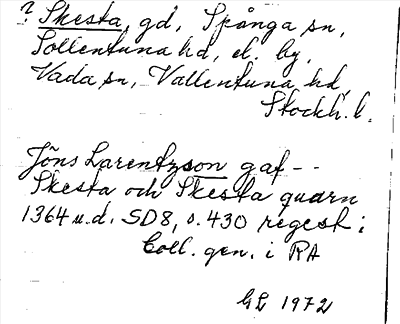 ? Skesta, gd, Spånga sn,
Sollentuna hd, el. by,
Vada sn, Vallentuna hd,
Stockh. l.
Jöns Larentzson gaf --
Skesta och Skesta quarn
1364 u.d. SD8, s. 430 regest i
Coll. gen. i RA
GL 1972